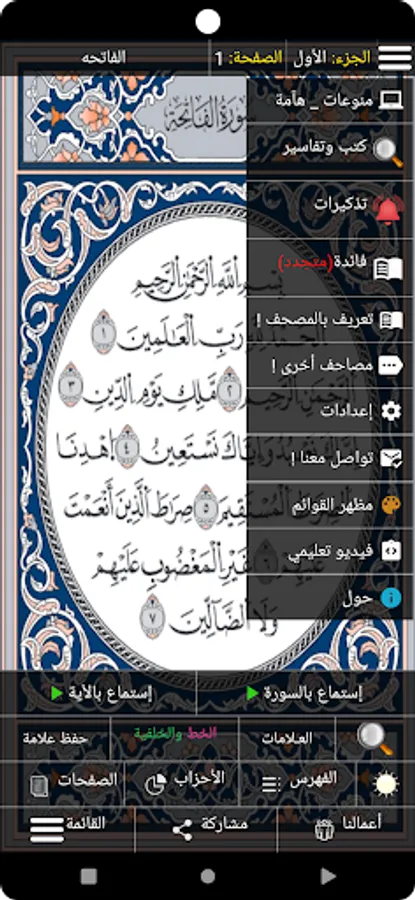 الجزء: الأول
الصفحة: 1
الفاتحه
سورة الفاتحة
منوعات _ هامة
كتب وتفاسير
تذكيرات
فائدة(متجدد)
تعريف بالمصحف !
مصاحف أخرى !
إعدادات
تواصل معنا !
مظهر القوائم
فيديو تعليمي
حول
بِسْمِ اللَّهِ الرَّحْمَٰنِ الرَّحِيمِ
الْحَمْدُ لِلَّهِ رَبِّ الْعَٰلَمِينَ ١
الرَّحْمَٰنِ الرَّحِيمِ ٢ مَلِكِ يَوْمِ الدِّينِ ٣
إِيَّاكَ نَعْبُدُ وَإِيَّاكَ نَسْتَعِينُ ٤ اهْدِنَا
الصِّرَٰطَ الْمُسْتَقِيمَ ٥ صِرَٰطَ الَّذِينَ أَنْعَمْتَ
عَلَيْهِمْ ٦ غَيْرِ الْمَغْضُوبِ عَلَيْهِمْ
وَلَا الضَّآلِّينَ ٧
إستماع بالسورة
إستماع بالأية
العلامات
الخط والخلفية
حفظ علامة
الفهرس
الأحزاب
الصفحات
أعمالنا
مشاركة
القائمة